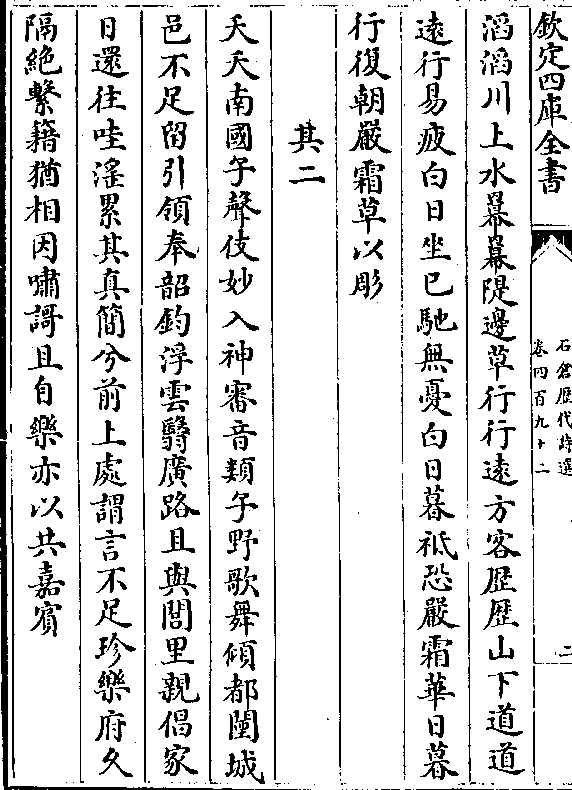 欽定四庫全書
石倉歴代詩選
卷四百九十二
二
滔滔川上水幕幕隄邊草行行遠方客歴歴山下道道
遠行易疲白日坐已馳無憂白日暮祗恐嚴霜華日暮
行復朝嚴霜草以彫
其二
夭夭南國子聲伎妙入神審音類子野歌舞傾都闉城
邑不足留引領奉韶鈞浮雲翳廣路且與閭里親倡家
日還往哇淫累其真簡兮前上處謂言不足珍樂府久
隔絶繫籍猶相因嘯謌且自樂亦以共嘉賓